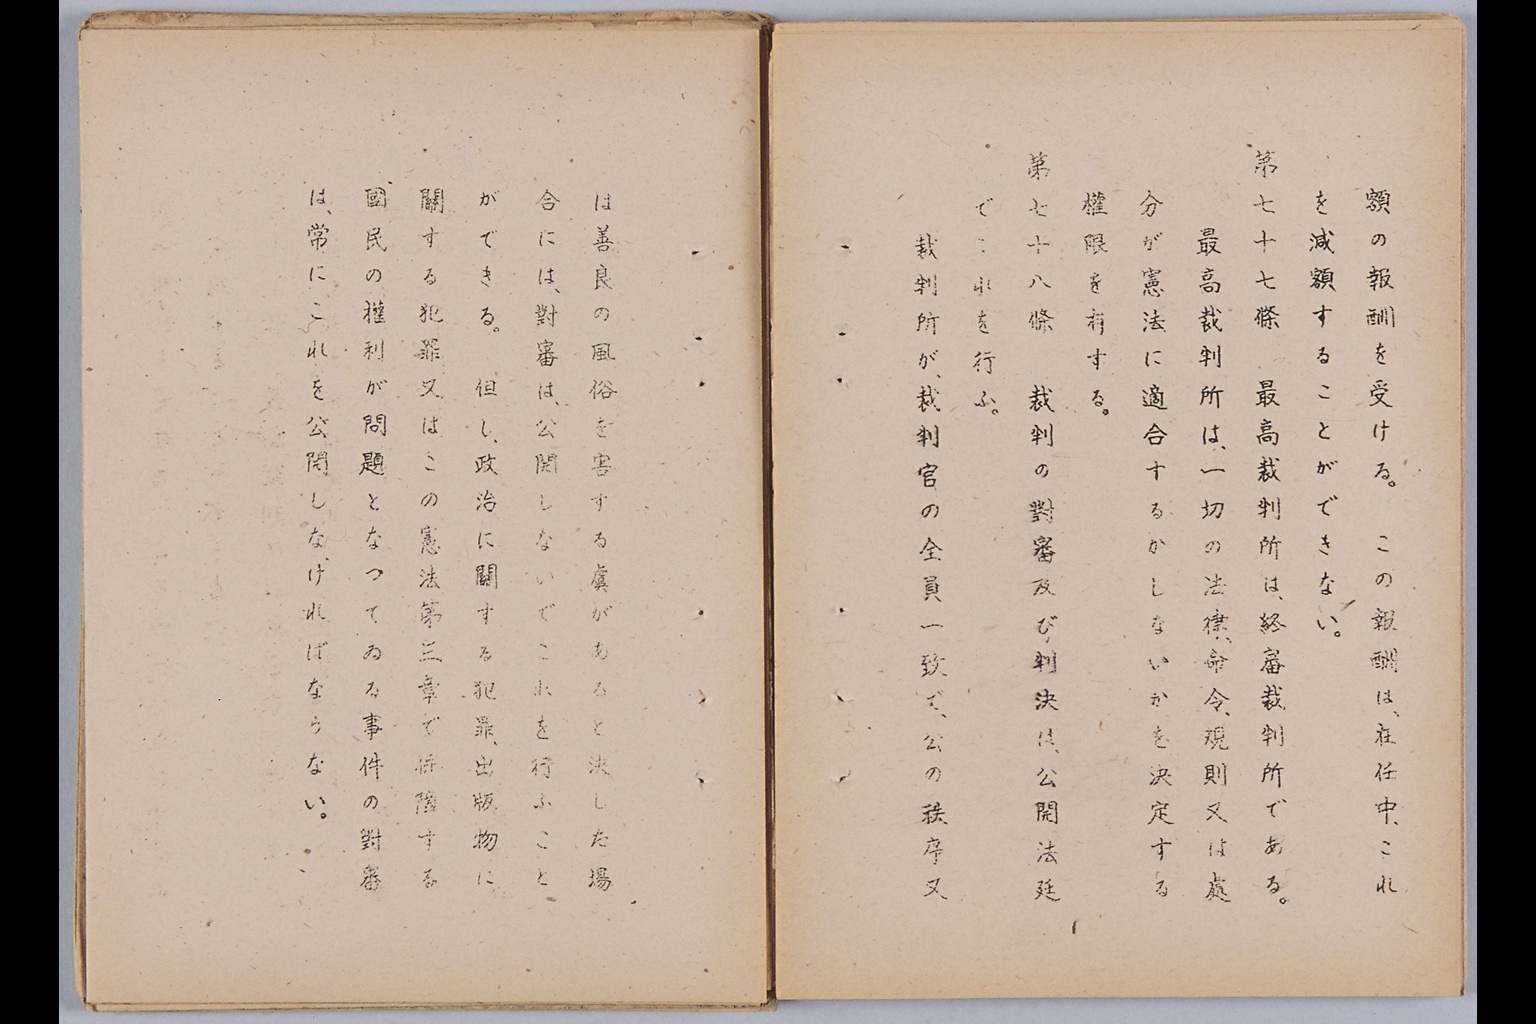 額の報酬を受ける。この報酬は、在任中、これ
を減額することができない。
第七十七條　最高裁判所は、終審裁判所である。
最高裁判所は、一切の法律、命令、規則又は處
分が憲法に適合するかしないかを決定する
權限を有する。
第七十八條　裁判の對審及び判決は、公開法廷
でこれを行ふ。
裁判所が、裁判官の全員一致で、公の秩序又
は善良の風俗を害する虞があると決した場
合には、對審は、公開しないでこれを行ふこと
ができる。但し、政治に關する犯罪、出版物に
關する犯罪又はこの憲法第三章で保障する
國民の權利が問題となつてゐる事件の對審
は、常にこれを公開しなければならない。